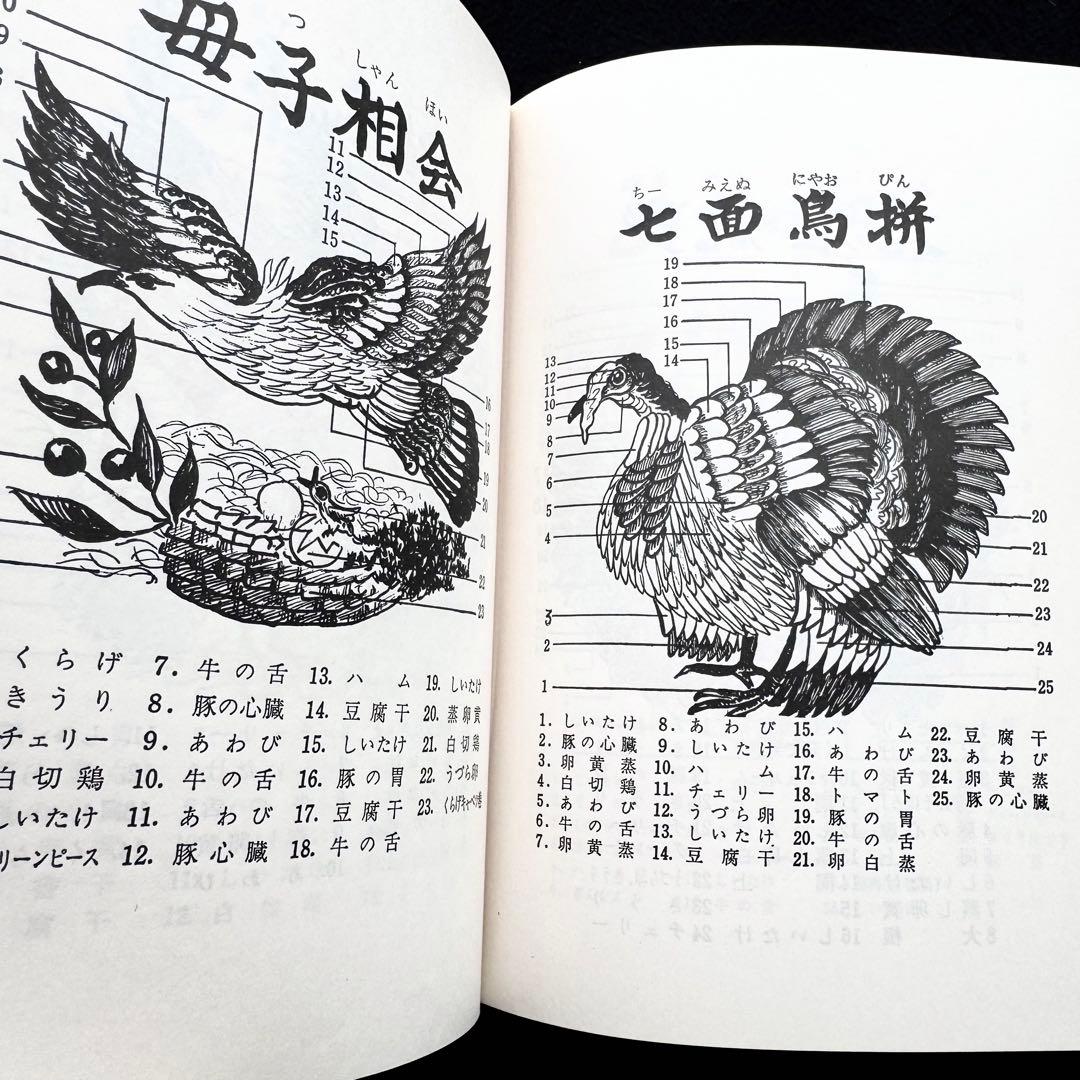 つ しゃん ほい
母子相会
11
12
13
14
15
16
17
18
19
20
21
22
23
くらげ 7. 牛の舌 13. ハム 19. しいたけ
きうり 8. 豚の心臓 14. 豆腐干 20. 蒸卵黄
チェリー 9. あわび 15. しいたけ 21. 白切鶏
白切鶏 10. 牛の舌 16. 豚の胃 22. うづら卵
しいたけ 11. あわび 17. 豆腐干 23. くらげキャベツ巻
リーンピース 12. 豚心臓 18. 牛の舌
ちー みえぬ にやお ぴん
七面鳥拼
19
18
17
16
15
14
13
12
11
10
9
8
7
6
5
4
3
2
1
20
21
22
23
24
25
1. しいたけ 8. あわび 15. ハム 22. 豆腐干
2. 豚の心臓 9. しいたけ 16. あわび 23. あわび
3. 卵黄蒸 10. ハム 17. 牛の舌 24. 卵黄蒸
4. 白切鶏 11. チェリー 18. トマト 25. 豚の心臓
5. あわび 12. うづら卵 19. 豚の胃
6. 牛の舌 13. しいたけ 20. 牛の舌
7. 卵黄蒸 14. 豆腐干 21. 卵の白蒸